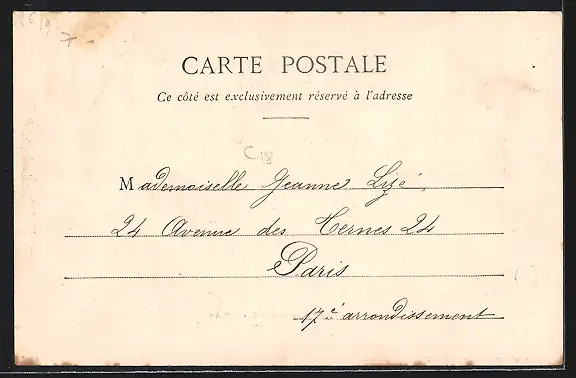 CARTE POSTALE
Ce côté est exclusivement réservé à l'adresse
C18
Mademoiselle Jeanne Lizé
24 Avenue des Ternes 24
Paris
17e arrondissement